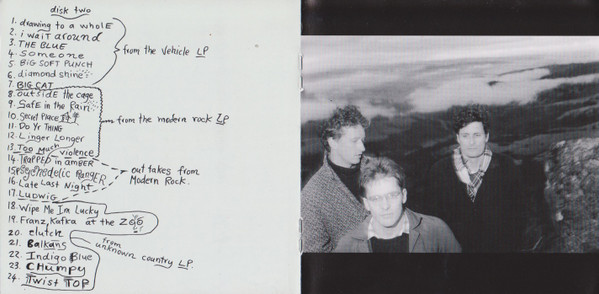 disk two
1. drawing to a whole
2. i wait around
3. THE BLUE
4. someone
5. BIG SOFT PUNCH
6. diamond shine
7. BIG CAT
from the vehicle LP
8. outside the cage
9. Safe in the Rain
10. Secret Place
11. Do Yr THING
12. Linger Longer
13. Too Much violence
from the modern rock LP
14. TRAPPED in amBER
15. Psychedelic RangER
16. Late Last Night
17. LUDWIG
out takes from
Modern Rock.
18. Wipe Me Im Lucky
19. Franz Kafka at the Zoo
20. clutch
21. Balkans
22. Indigo Blue
23. CHUMPY
24. Twist TOP
from
unknown country LP.